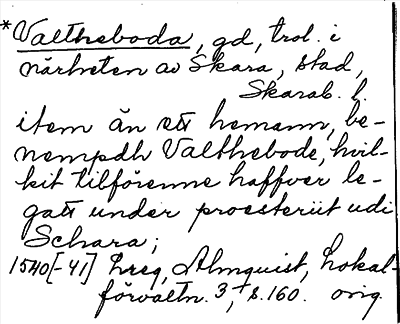 *Valtheboda, gd, trol. i
närheten av Skara, stad,
Skarab. l.
item än ett hemann, be-
nempdh Valthebode, hvil-
kit tilförenne haffver le-
gatt under proesteriit udi
Schara;
1540[-41] hreg, Almquist, Lokal-
förvaltn. 3, s. 160. orig.